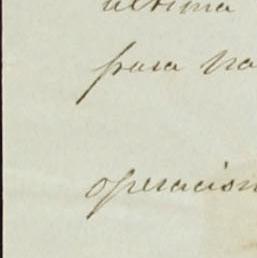 ultima
para na
operacion